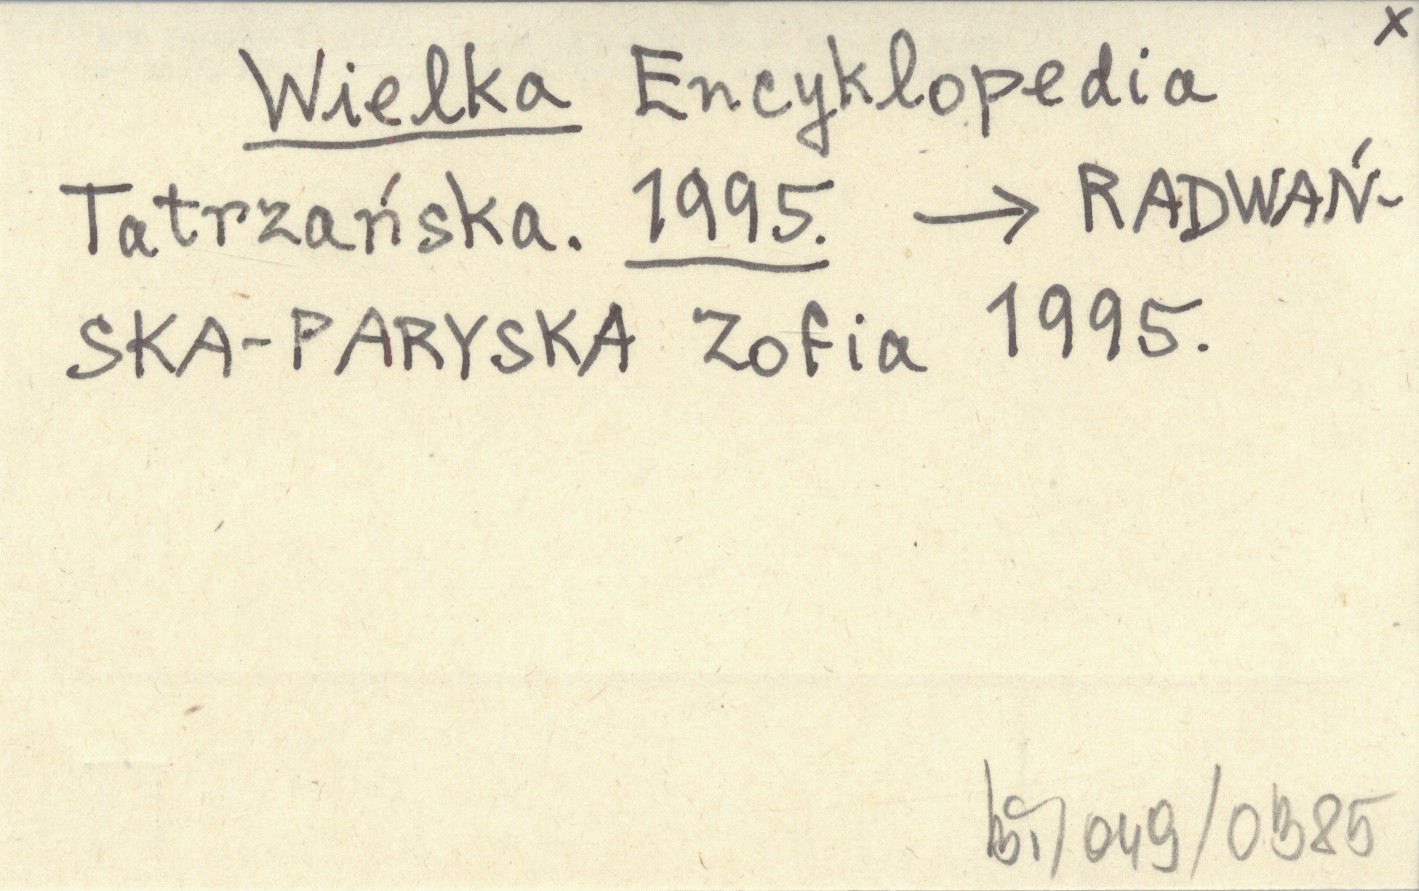 x
Wielka Encyklopedia
Tatrzańska. 1995. → RADWAŃ-
SKA-PARYSKA Zofia 1995.
049/0385